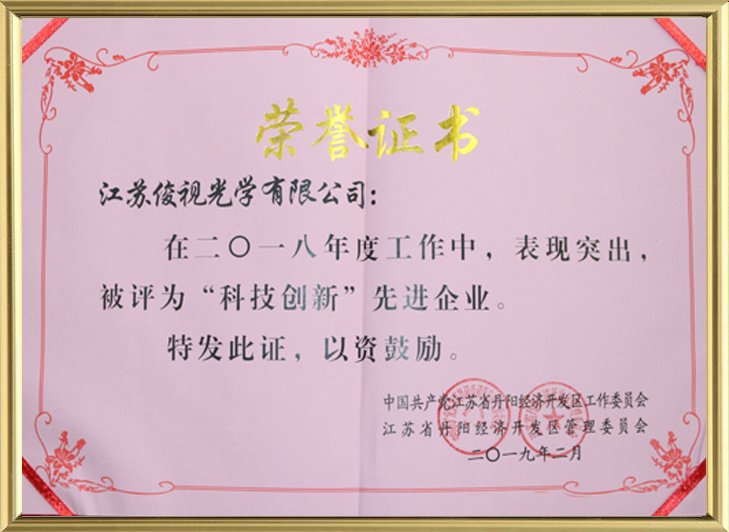 荣誉证书
江苏俊视光学有限公司：
在二〇一八年度工作中，表现突出，
被评为“科技创新”先进企业。
特发此证，以资鼓励。
中国共产党江苏省丹阳经济开发区工作委员会
江苏省丹阳经济开发区管理委员会
二〇一九年二月